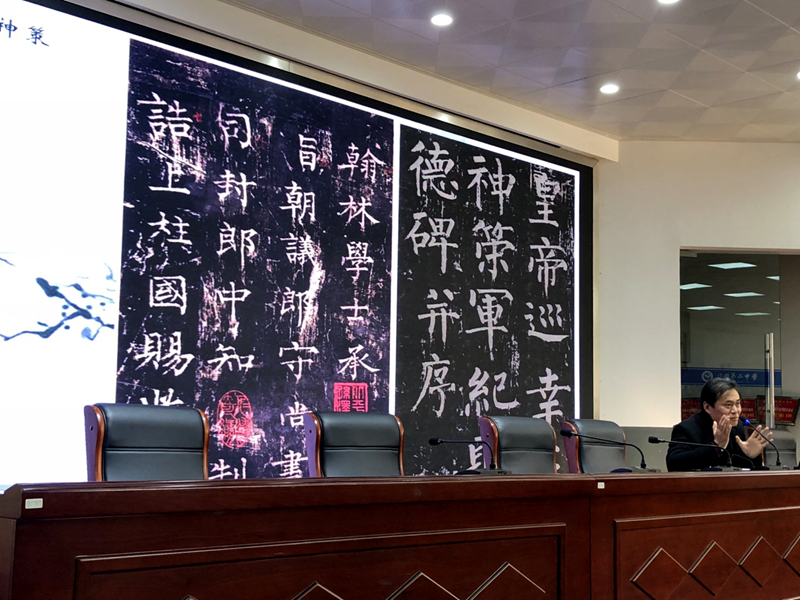 神策
皇帝巡幸
神策軍紀
德碑并序
翰林學士承
旨朝議郎守尚書
司封郎中知制
誥上柱國賜